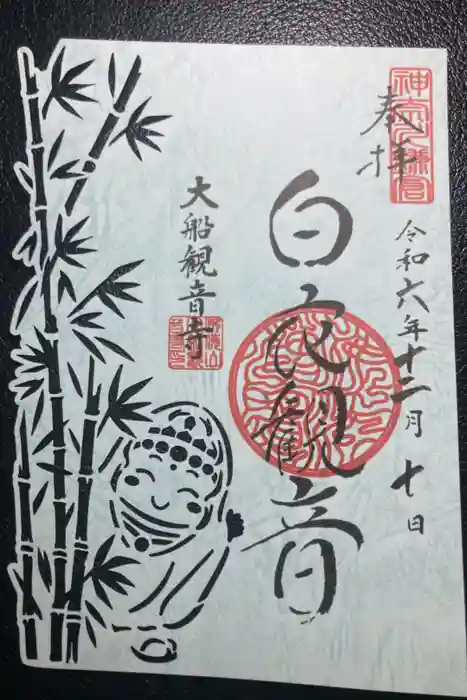 奉拝
令和六年十二月七日
白衣観音
大船観音寺